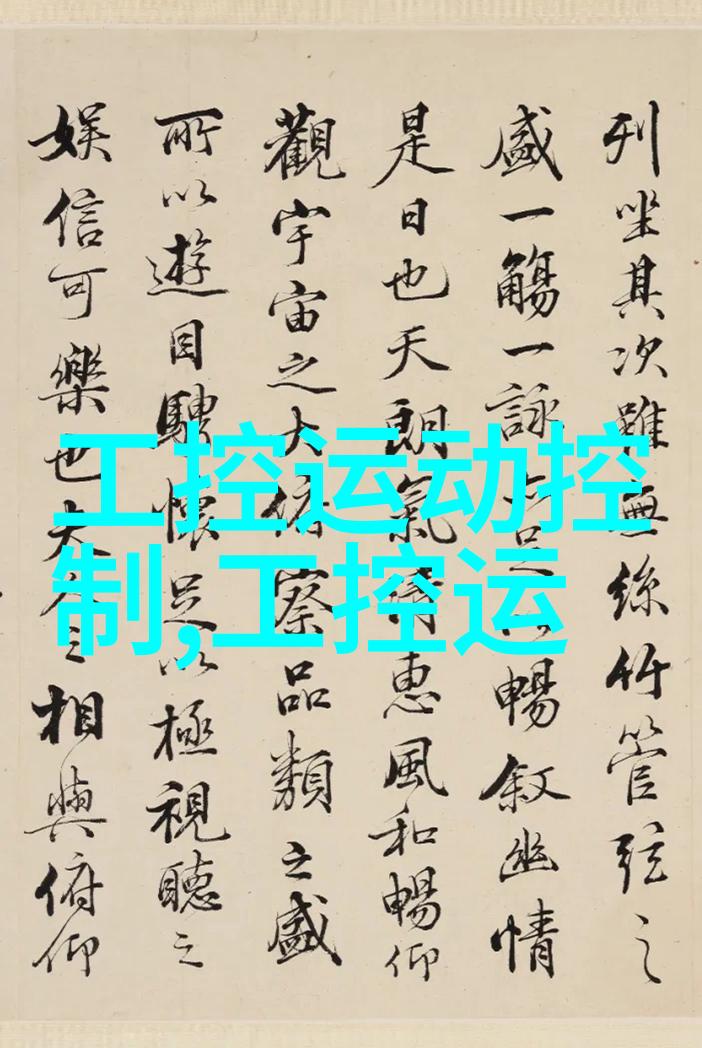 列坐其次雖無絲竹管弦之
盛一觴一詠亦足以暢叙幽情
是日也天朗氣清惠風和暢仰
觀宇宙之大俯察品類之盛
所以遊目騁懷足以極視聽之
娛信可樂也夫人之相與俯仰
工控运动控
制,工控运